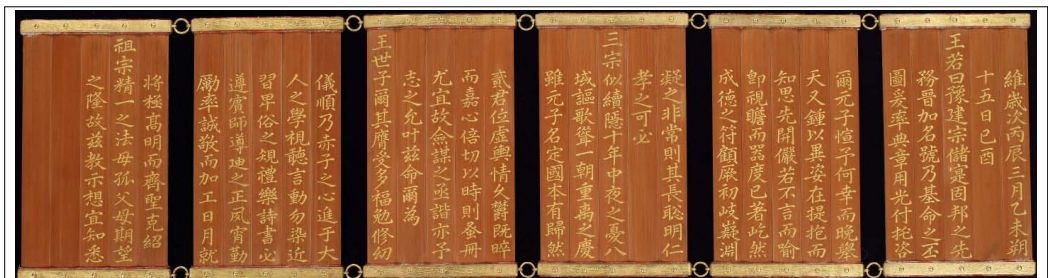 維歲次丙辰三月乙未朔
十五日己酉
王若曰豫建宗儲寔固邦之先
務晉加名號乃基命之丕
圖爰率典章用光付托咨
爾元子愃予何幸而晚擧
天又鍾以異姿在提抱而
知思先開儼若不言而喩
卽視瞻而器度已著屹然
成德之符顧厥初岐嶷淵
凝之非常則其長聡明仁
孝之可必
三宗似續隱十年中夜之憂八
域謳歌聳一朝重萬之慶
雖元子名定國本有歸然
貳君位虛輿情久鬱旣晬
而嘉心倍切以時則發冊
尤宜故僉謀之亟諧亦予
志之允叶茲命爾爲
王世子爾其膺受多福勉修幼
儀順乃赤子之心進于大
人之學視聽言動勿染近
習卑俗之規禮樂詩書必
遵賓師導迪之正夙宵勤
勵率誠敬而加工日月就
將極高明而齊聖克紹
祖宗精一之法毋孤父母期望
之隆故茲敎示想宜知悉